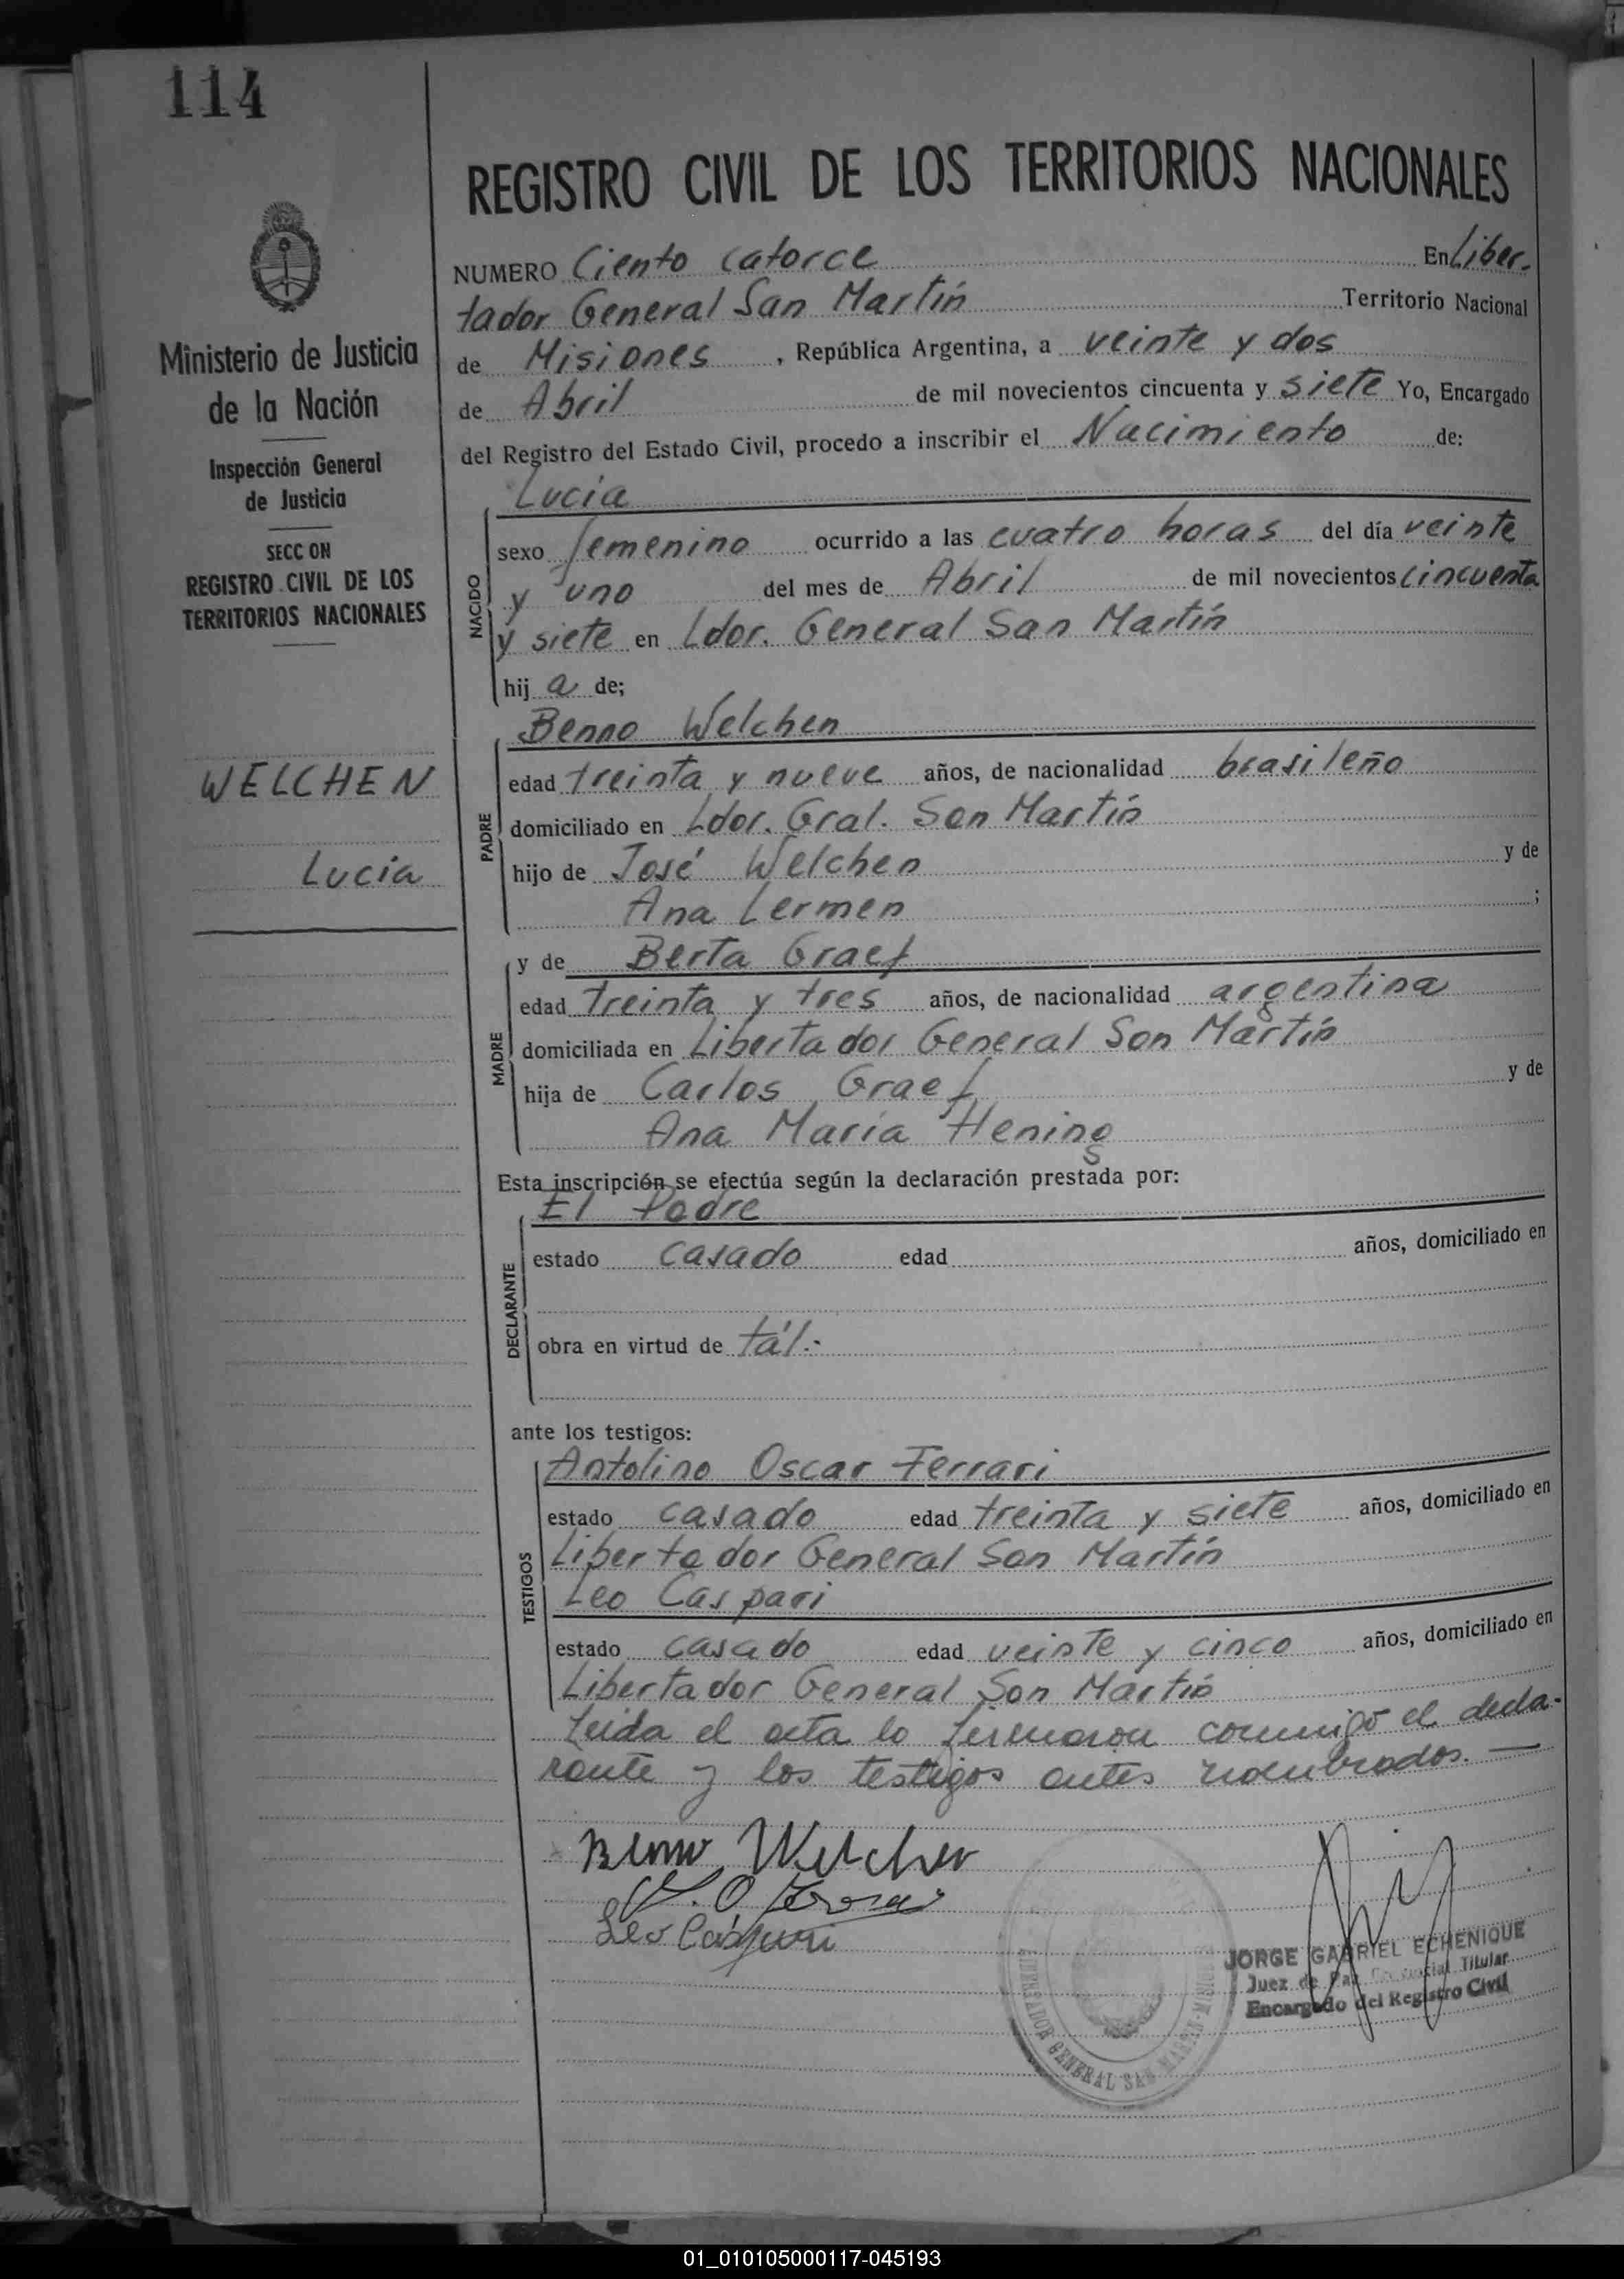 114
REGISTRO CIVIL DE LOS TERRITORIOS NACIONALES
Ministerio de Justicia
de la Nación
Inspección General
de Justicia
SECC ON
REGISTRO CIVIL DE LOS
TERRITORIOS NACIONALES
WELCHEN
Lucia
NUMERO Ciento catorce En Liber-
tador General San Martín Territorio Nacional
de Misiones, República Argentina, a veinte y dos
de Abril de mil novecientos cincuenta y siete Yo, Encargado
del Registro del Estado Civil, procedo a inscribir el Nacimiento de:
Lucia
NACIDO
sexo femenino ocurrido a las cuatro horas del día veinte
y uno del mes de Abril de mil novecientos cincuenta
y siete en Ldor. General San Martín
hij a de;
Benno Welchen
PADRE
edad treinta y nueve años, de nacionalidad brasileño
domiciliado en Ldor. Gral. San Martín
hijo de José Welchen y de
Ana Lermen ;
y de Berta Graef
MADRE
edad treinta y tres años, de nacionalidad argentina
domiciliada en Libertador General San Martín
hija de Carlos Graef y de
Ana María Hening
Esta inscripción se efectúa según la declaración prestada por:
El Padre
DECLARANTE
estado casado edad años, domiciliado en
obra en virtud de tál.-
ante los testigos:
Antolino Oscar Ferrari
TESTIGOS
estado casado edad treinta y siete años, domiciliado en
Libertador General San Martín
Leo Caspari
estado casado edad veinte y cinco años, domiciliado en
Libertador General San Martín
Leida el acta lo firmaron conmigo el decla-
rante y los testigos antes nombrados. —
Benno Welchen
Leo Caspari
JORGE GABRIEL ECHENIQUE
Juez de Paz Titular
Encargado del Registro Civil
GENERAL SAN MARTIN
01_010105000117-045193